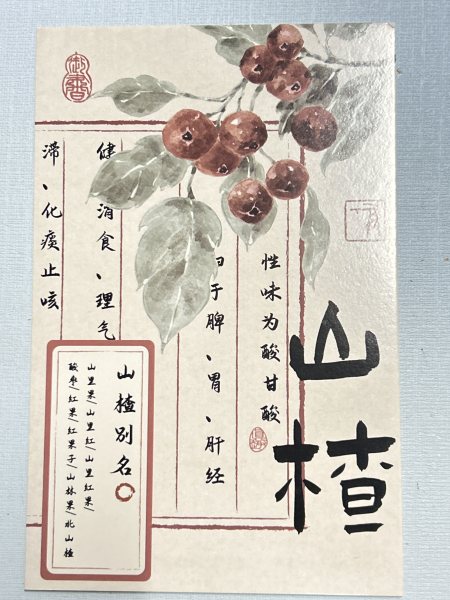 山楂
性味为酸甘酸
归于脾、胃、肝经
健消食、理气
滞、化痰止咳
山楂别名
山里果/山里红/山里红果/
酸枣/红果/红果子/山林果/北山楂